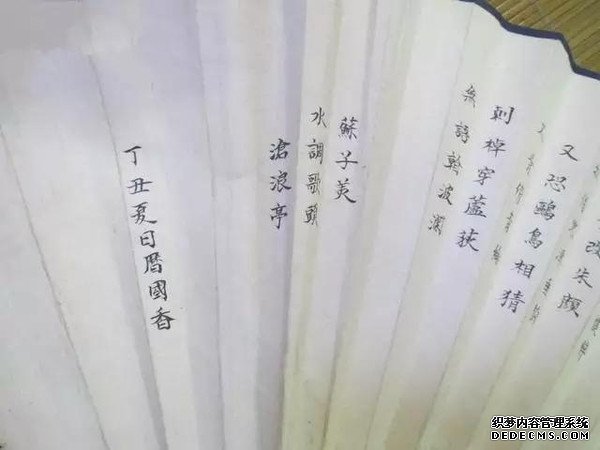 改朱顏
又恐鷗鳥相猜
刺棹穿蘆荻
無語看波瀾
蘇子美
水調歌頭
滄浪亭
丁丑夏日曆國香
织梦内容管理系统
DEDECMS.COM